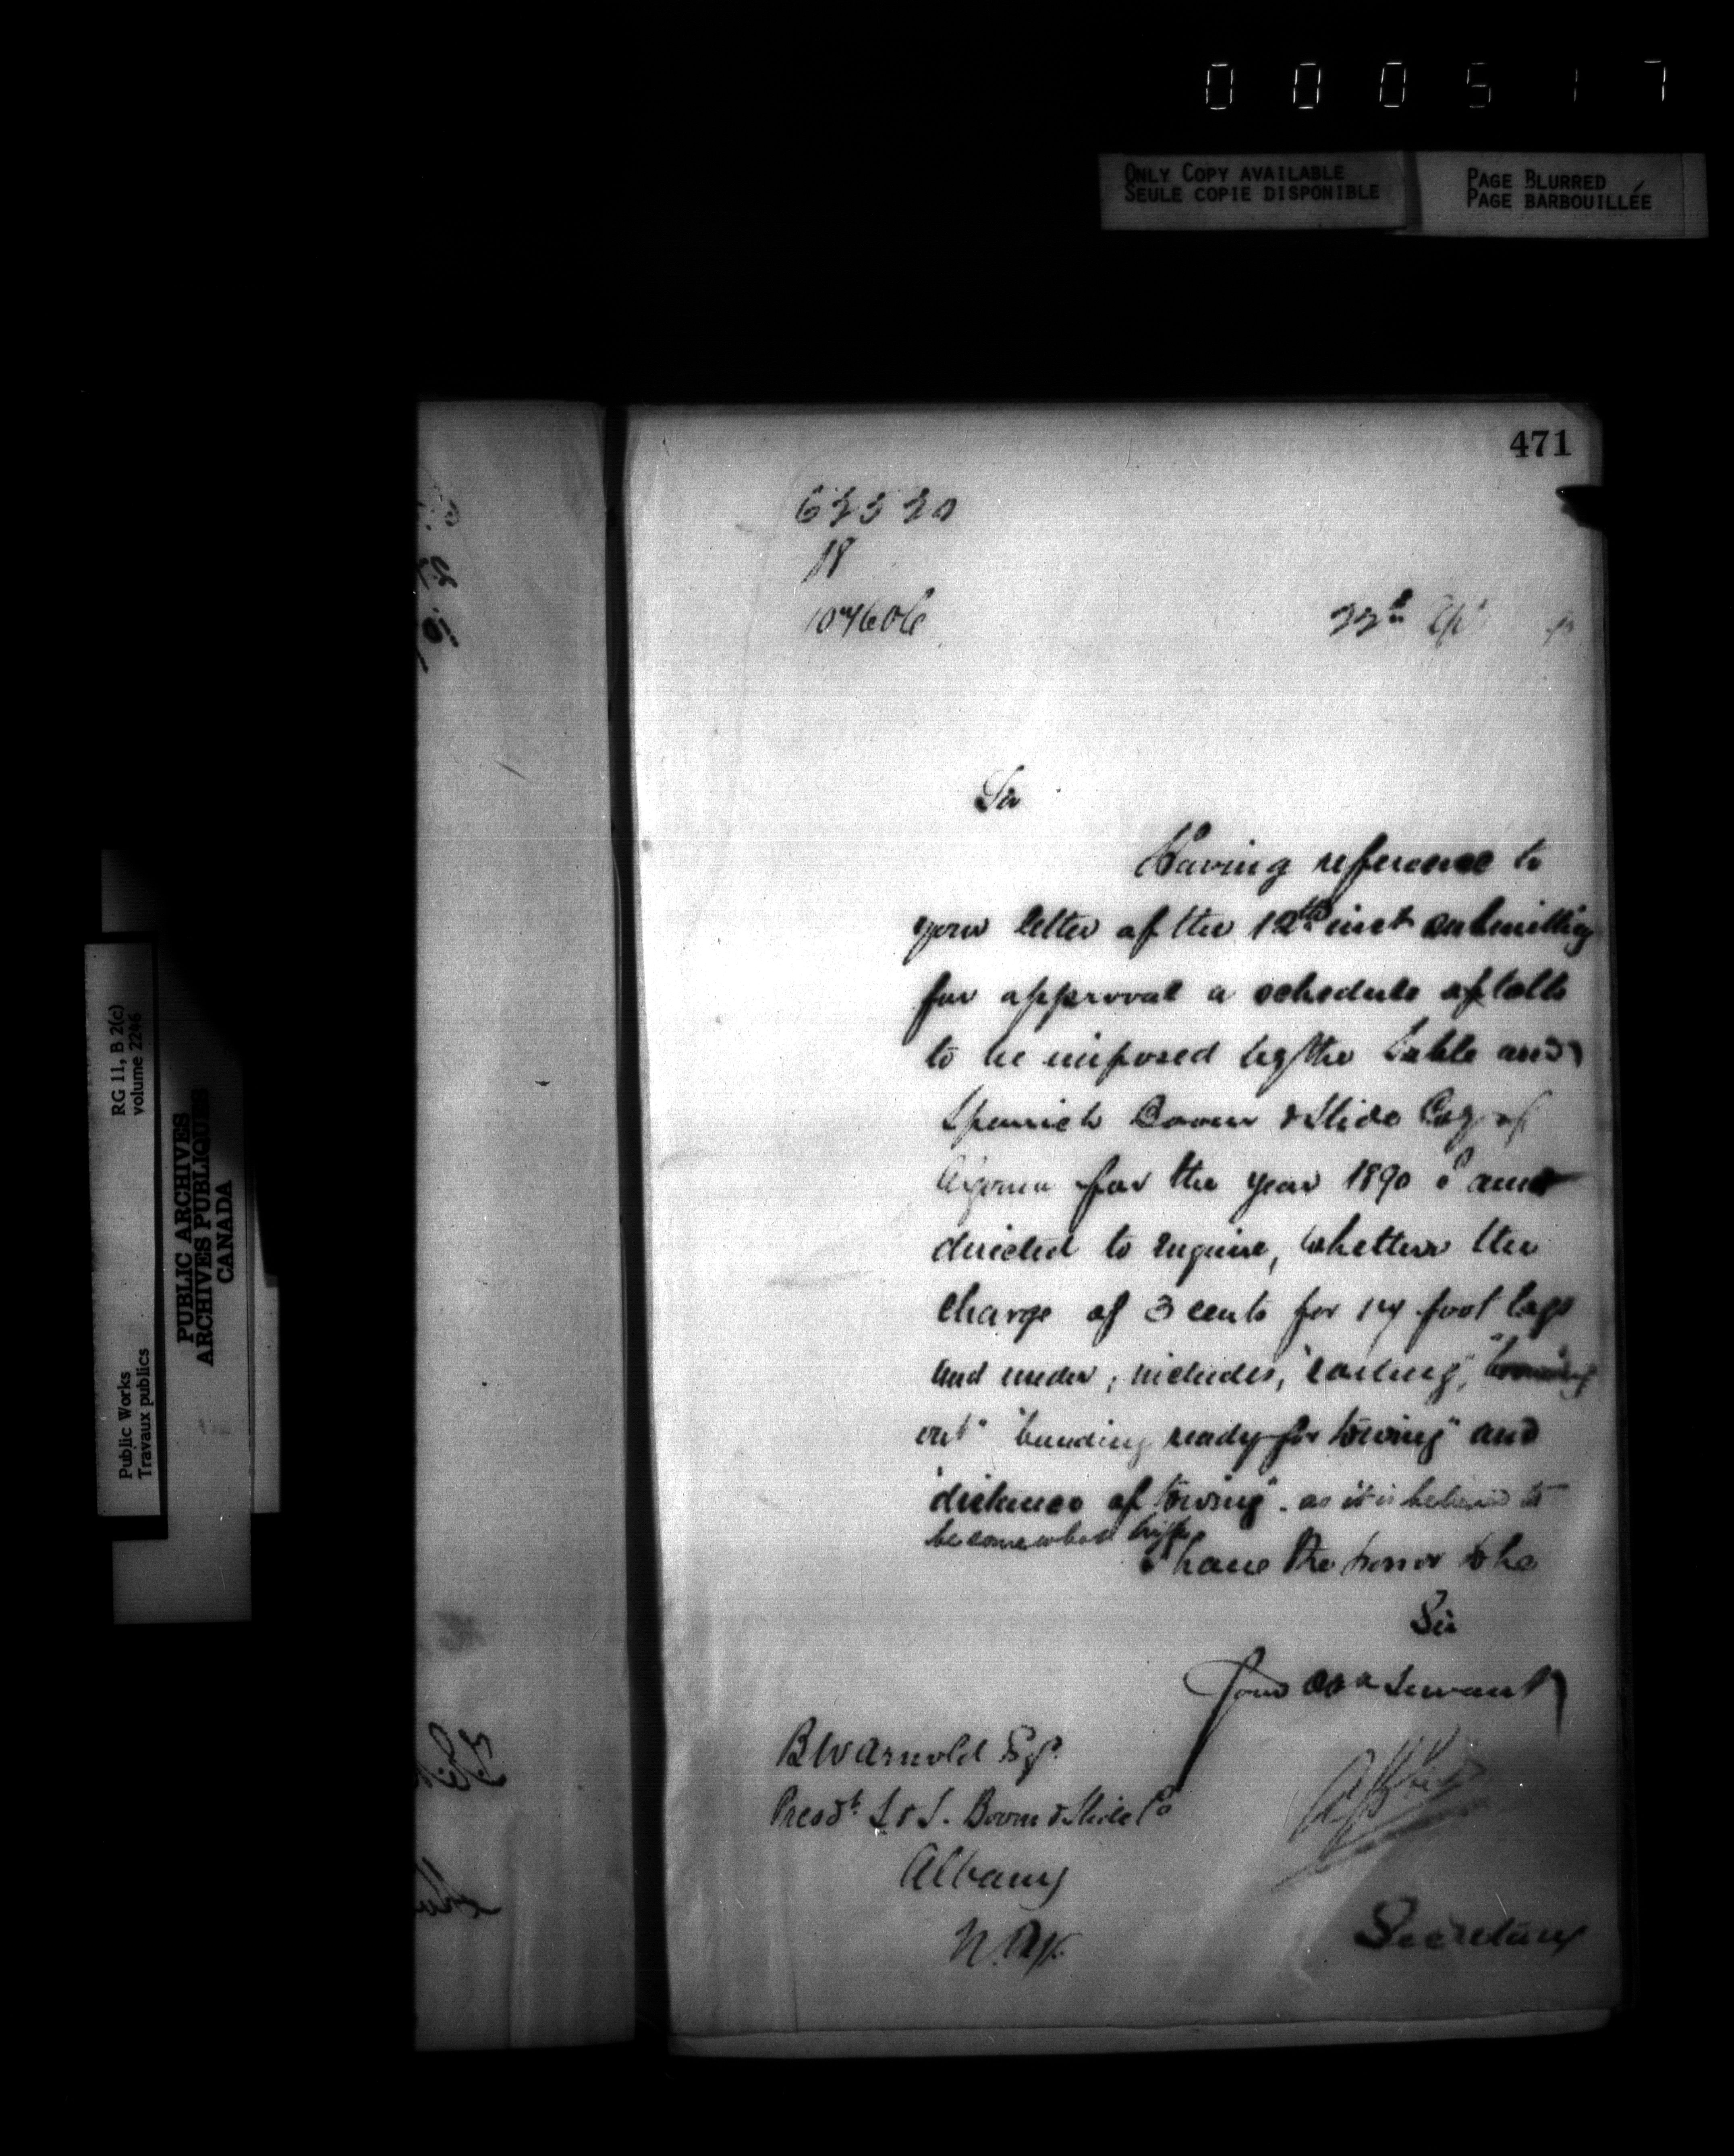 000517
ONLY COPY AVAILABLE
SEULE COPIE DISPONIBLE
PAGE BLURRED
PAGE BARBOUILLÉE
471
18
Sir
Having reference to
your letter of the 12th inst submitting
for approval a schedule of tolls
to be imposed by the Sable and
Spanish Boom & Slide Coy of
Algoma for the year 1890 I am
directed to enquire, whether the
charge of 3 cents for 14 foot logs
and under, includes, "sorting", "booming
out" "banding ready for towing" and
"distance of towing" - as it is believed to
be somewhat high
I have the honor to be
Sir
Your Obt Servant
B W Arnold Esq.
Presdt S & S. Boom & Slide Co
Albany
N.Y.
Secretary
RG 11, B 2(c)
volume 2246
Public Works
Travaux publics
PUBLIC ARCHIVES
ARCHIVES PUBLIQUES
CANADA